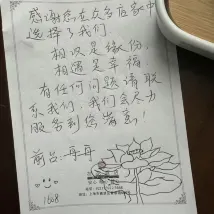 感谢您在众多店家中
选择了我们
相识是缘份,
相遇是幸福
有任何问题请联
系我们,我们会尽力
服务到您满意!
前台:丹丹
1508